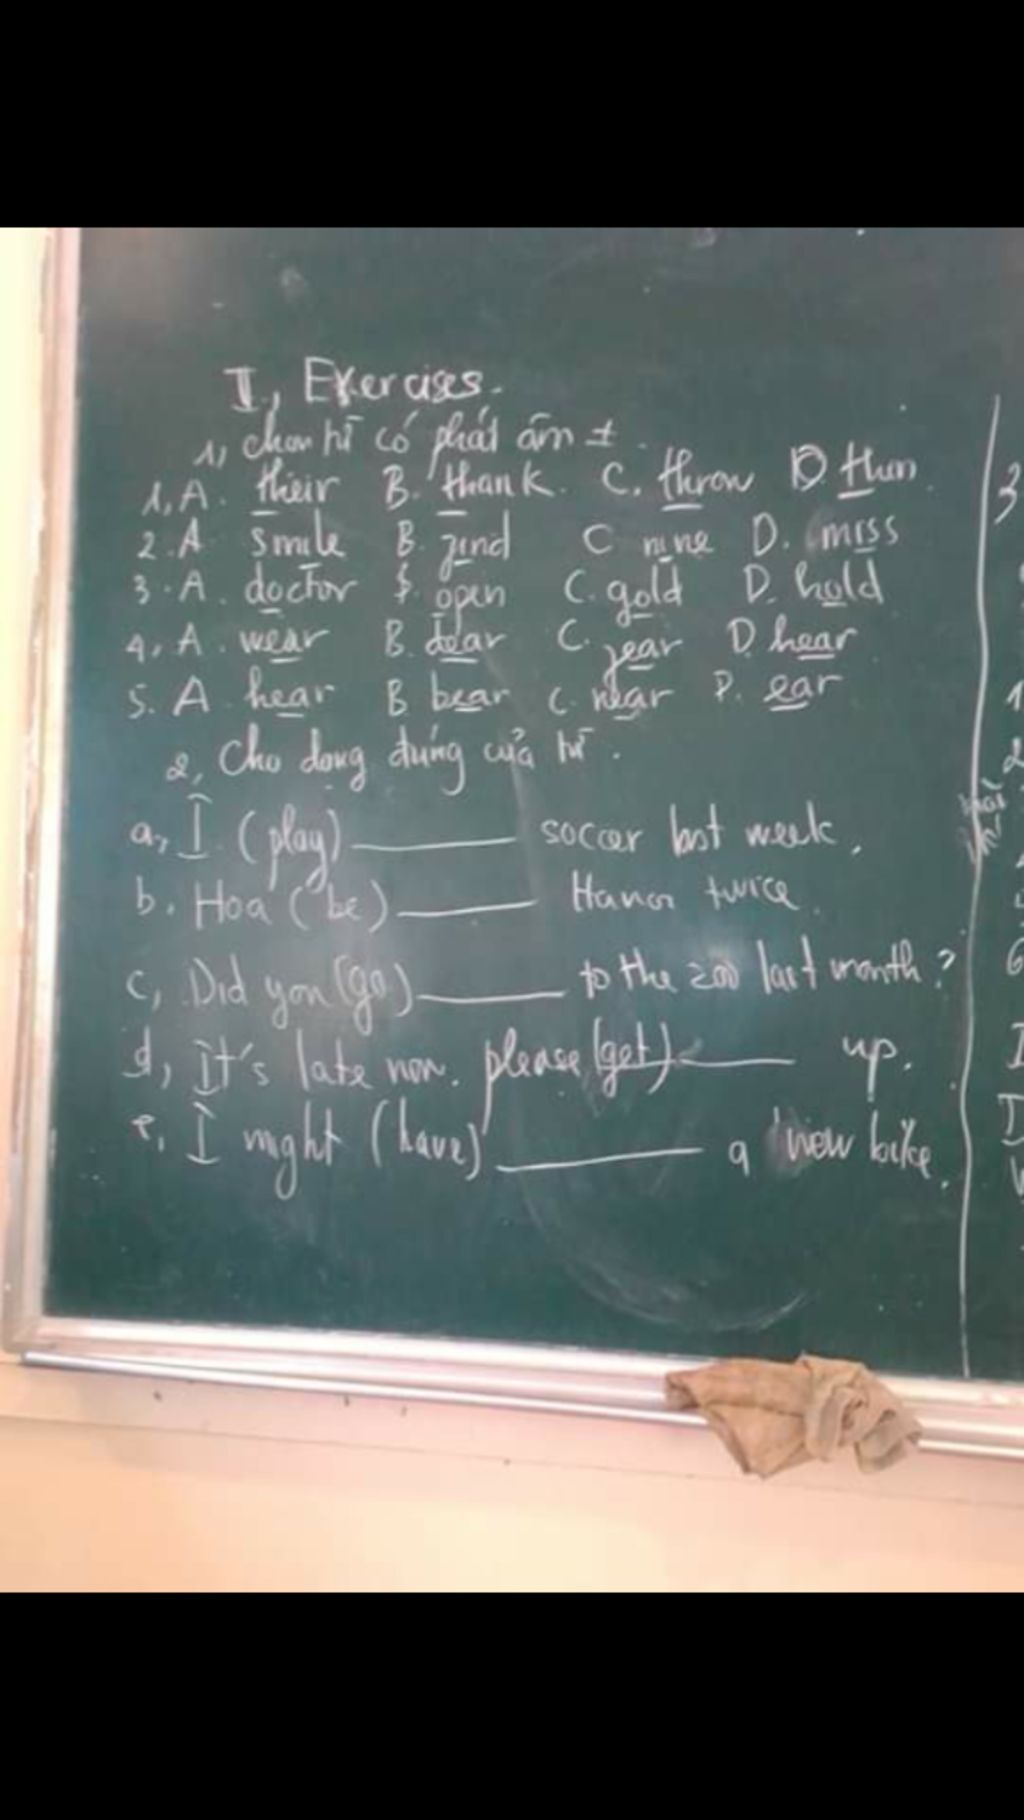 I, Exercises.
1, chọn từ có phát âm ≠.
1, A. their B. thank. C. throw D thin.
2. A smile B. find C nine D. miss
3. A. doctor B. open C. gold D. hold
4, A. wear B. dear C. year D. hear
5. A. hear B. bear C. near D. ear
2, Cho dạng đúng của từ.
a, I (play) soccer last week.
b. Hoa (be) Hanoi twice.
c, Did you (go) to the zoo last month?
d, It's late now. please (get) up.
e, I might (have) a new bike.
3
1
2
6
I
D